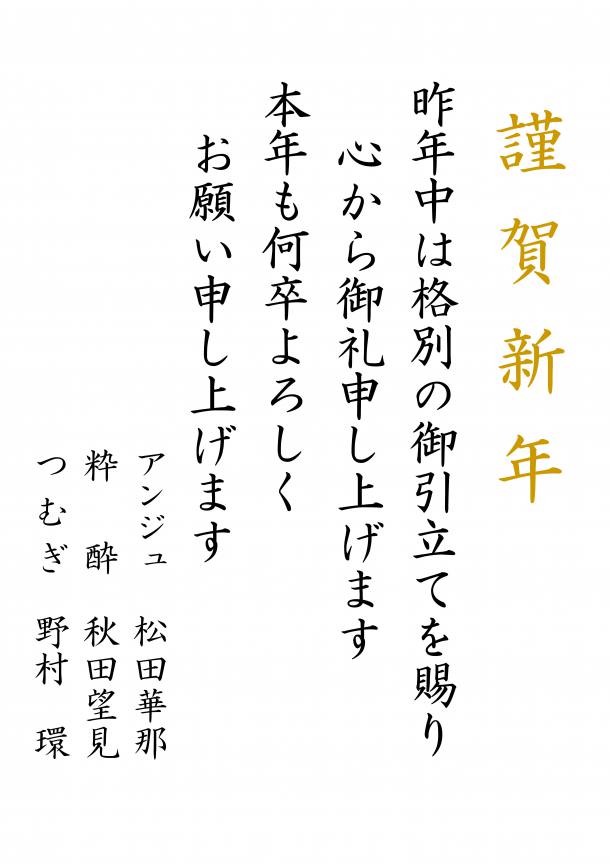 謹賀新年
昨年中は格別の御引立てを賜り
心から御礼申し上げます
本年も何卒よろしく
お願い申し上げます
アンジュ 松田華那
粋酔 秋田望見
つむぎ 野村環